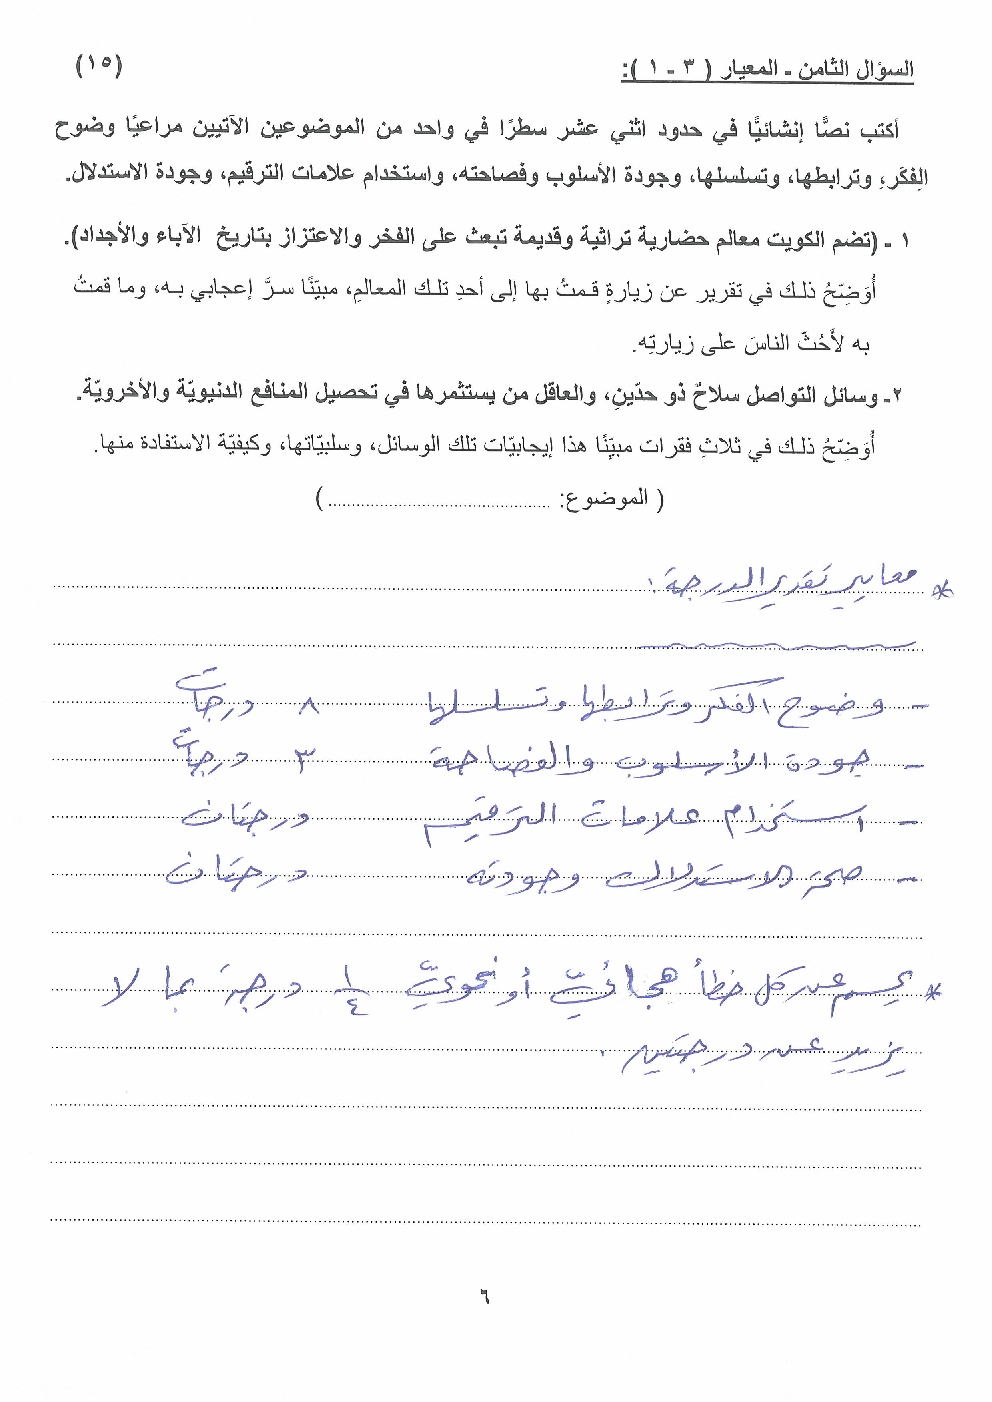 السؤال الثامن - المعيار ( ٣ - ١ ): (١٥)
أكتب نصًّا إنشائيًّا في حدود اثني عشر سطرًا في واحد من الموضوعين الآتيين مراعيًا وضوح
الفِكَرِ، وترابطها، وتسلسلها، وجودة الأسلوب وفصاحته، واستخدام علامات الترقيم، وجودة الاستدلال.
١ - (تضم الكويت معالم حضارية تراثية وقديمة تبعث على الفخر والاعتزاز بتاريخ الآباء والأجداد).
أُوَضِّحُ ذلك في تقرير عن زيارةٍ قمتُ بها إلى أحدِ تلك المعالمِ، مبيّنًا سرَّ إعجابي به، وما قمتُ
به لأحُثّ الناسَ على زيارتِه.
٢- وسائل التواصل سلاحٌ ذو حدّينِ، والعاقل من يستثمرها في تحصيل المنافع الدنيويّة والأخرويّة.
أُوَضِّحُ ذلك في ثلاثِ فقرات مبيّنًا هذا إيجابيّات تلك الوسائل، وسلبيّاتها، وكيفيّة الاستفادة منها.
( الموضوع: ........................................ )
* معايير تقدير الدرجة :
- وضوح الفكر وترابطها وتسلسلها ٨ درجات
- جودة الأسلوب والفصاحة ٣ درجات
- استخدام علامات الترقيم درجتان
- صحة الاستدلال وجودته درجتان
* يحسم عن كل خطأ هجائيّ أو نحويّ ١/٤ درجة بما لا
يزيد عن درجتين .
٦